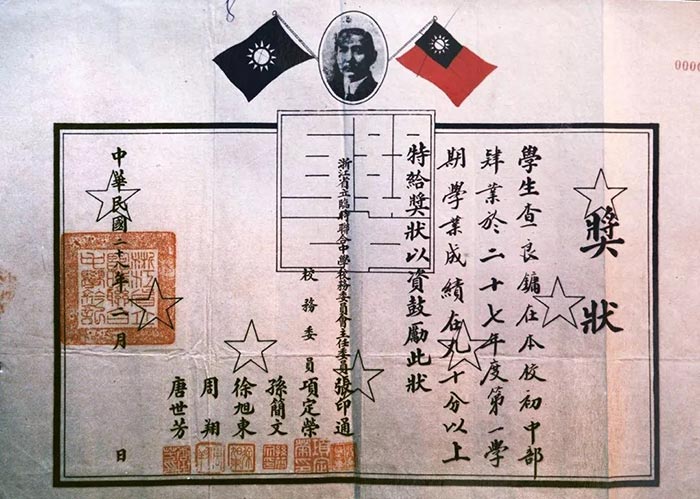 8
0000
獎狀
學生查良鏞在本校初中部
肄業於二十七年度第一學
期學業成績在九十分以上
特給獎狀以資鼓勵此狀
浙江省立臨時聯合中學校務委員會主任委員張印通
校務委員項定榮
孫簡文
徐旭東
周翔
唐世芳
中華民國二十八年二月 日